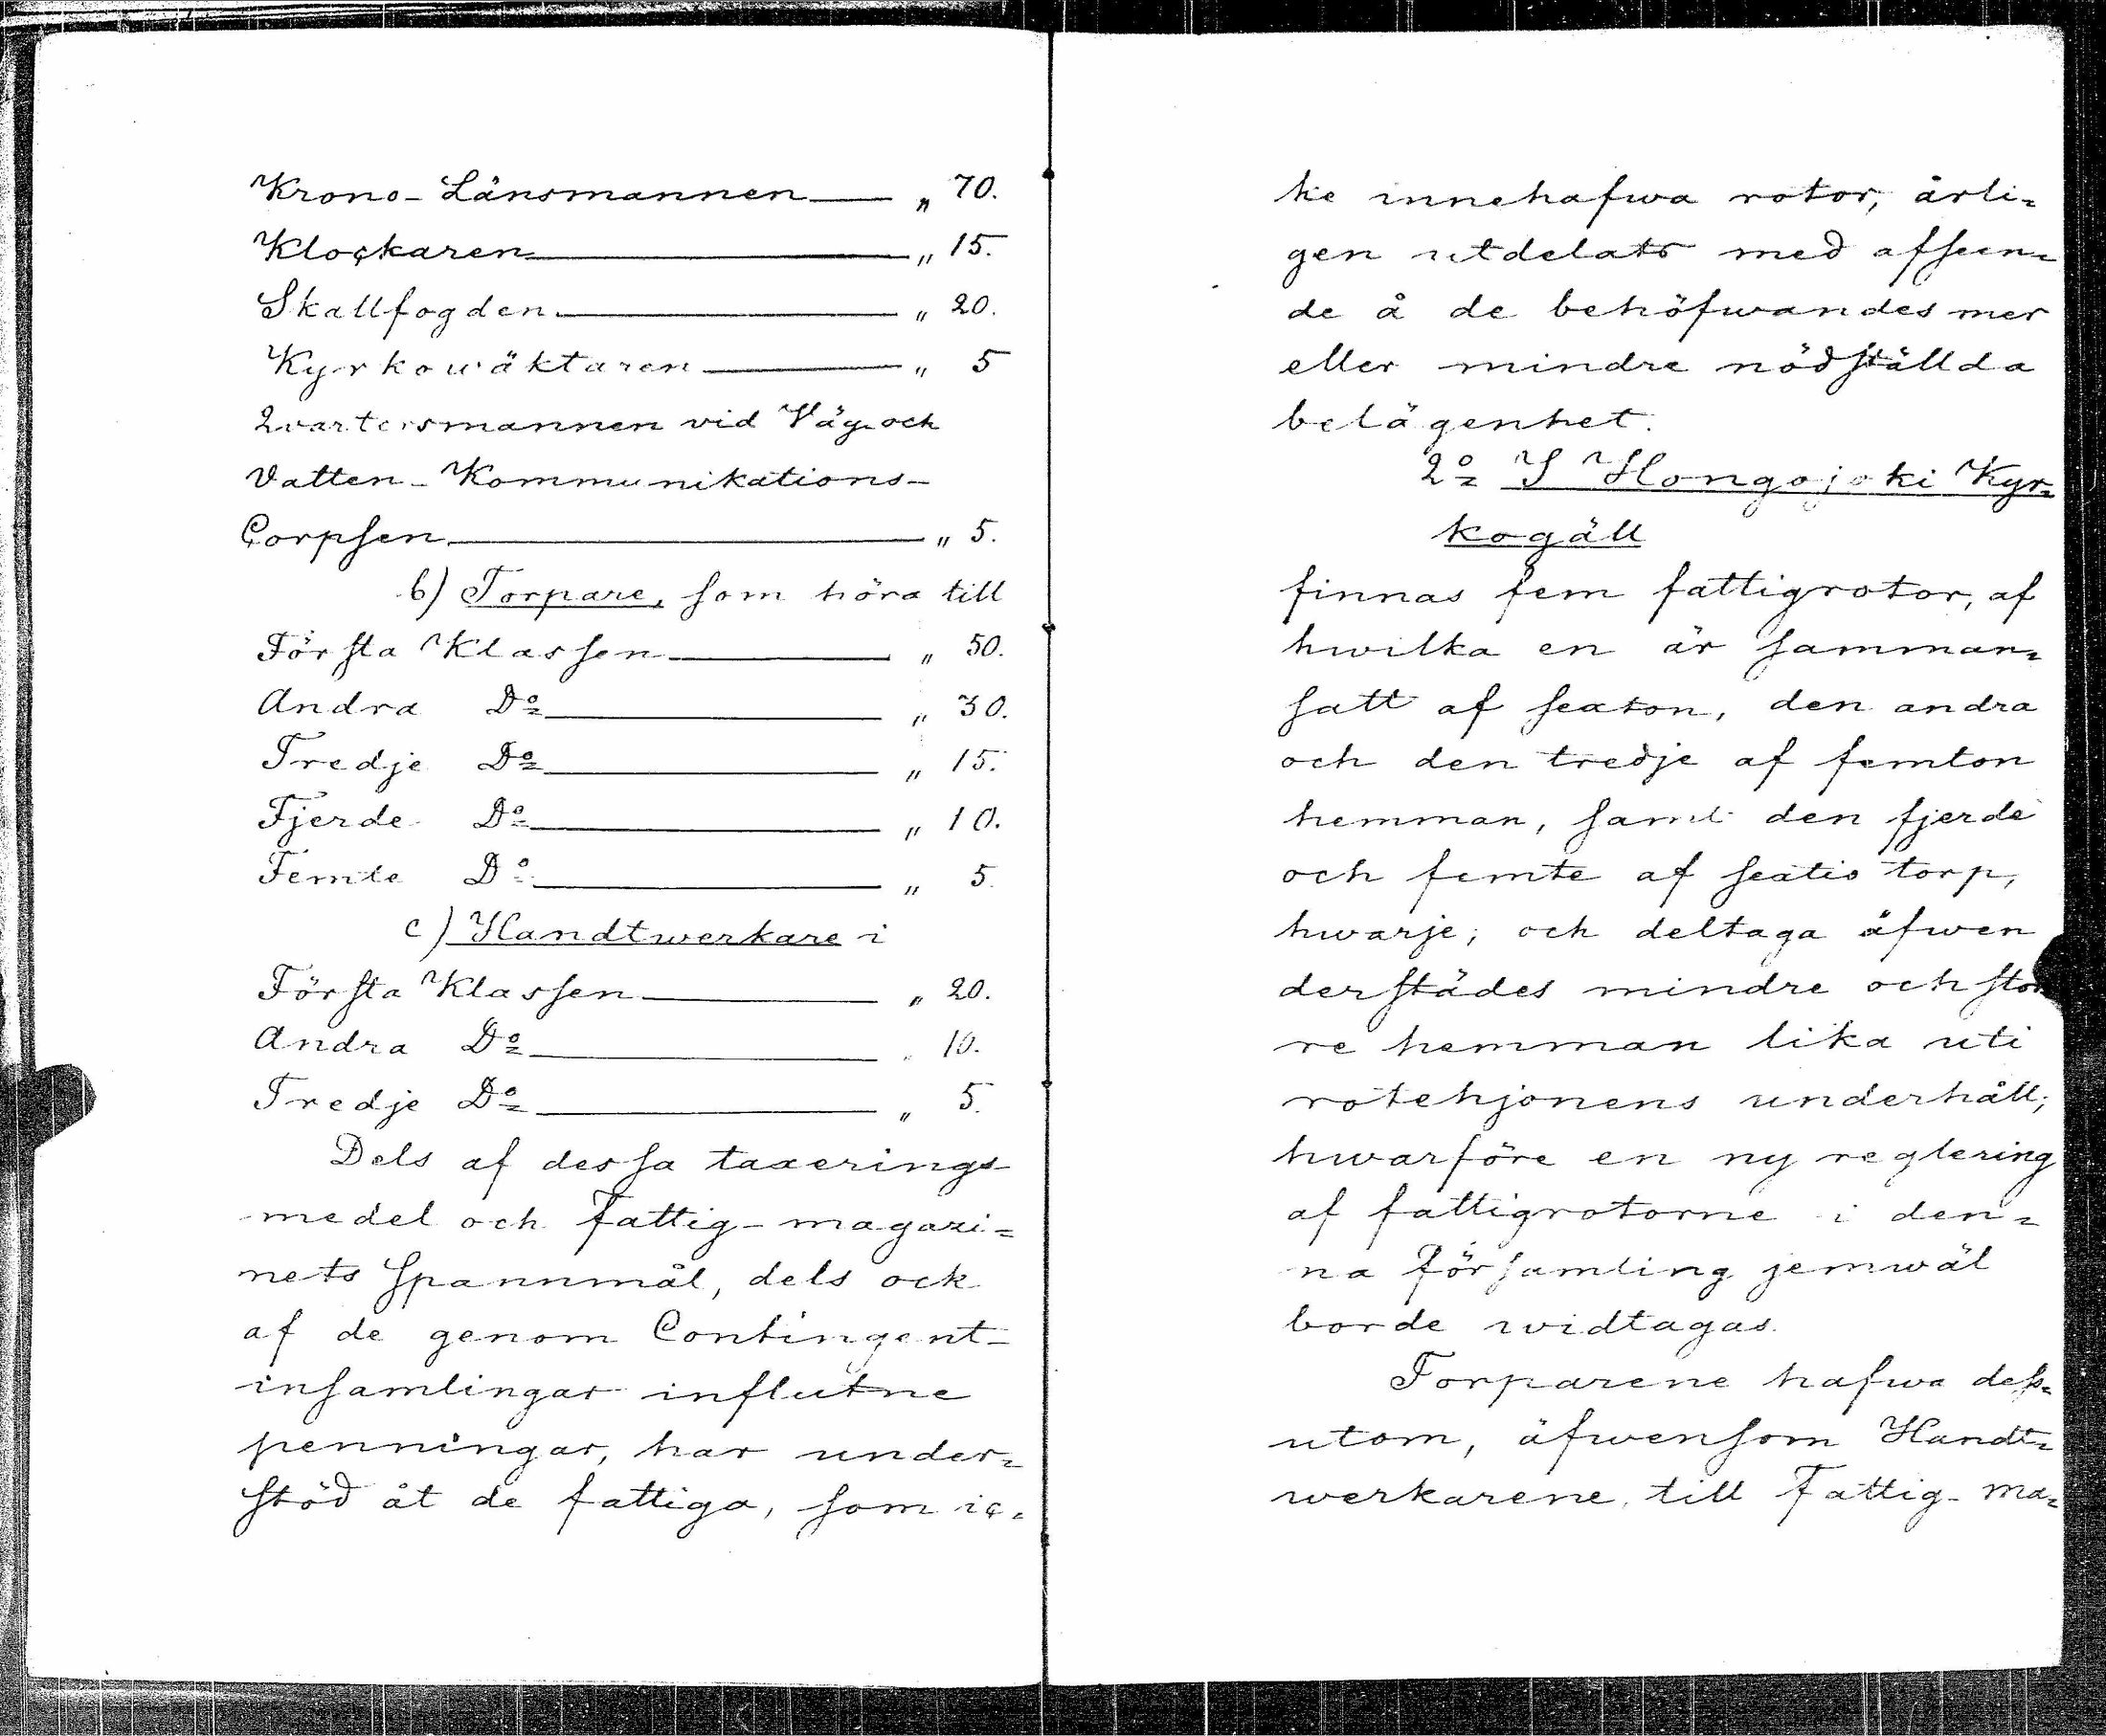 Krono-Länsmannen — " 70.
Klockaren — " 15.
Skallfogden — " 20.
Kyrkowäktaren — " 5
Qvartersmannen vid Väg och
Vatten-Kommunikations-
Corpsen — " 5.
b) Torpare, som höra till
Första Klassen — " 50.
Andra Do — " 30.
Tredje Do — " 15.
Fjerde Do — " 10.
Femte Do — " 5.
c) Handtwerkare i
Första Klassen — " 20.
Andra Do — " 10.
Tredje Do — " 5.
Dels af dessa taxerings-
medel och Fattig-magazi=
nets Spannmål, dels ock
af de genom Contingent-
insamlingar influtne
penningar, har under=
stöd åt de fattiga, som ic=
ke innehafwa rotor, årli=
gen utdelats med afseen=
de å de behöfwandes mer
eller mindre nödställda
belägenhet.
2o I Hongojoki Kyr=
kogäll
finnas fem fattigrotor, af
hwilka en är samman=
satt af sexton, den andra
och den tredje af femton
hemman, samt den fjerde
och femte af sextio torp,
hwarje; och deltaga äfwen
derstädes mindre och stör
re hemman lika uti
rotehjonens underhåll;
hwarföre en ny reglering
af fattigrotorne i den=
na Församling jemwäl
borde widtagas.
Torparene hafwa dess=
utom, äfwensom Handt=
werkarene, till Fattig-ma=